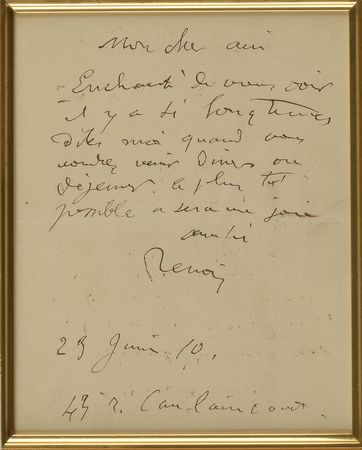 Mon cher ami
Enchanté de vous voir
il y a si longtemps
dites moi quand vous
voudrez venir diner ou
déjeuner. le plus tôt
possible ce sera une joie
amitié
Renoir
23 Juin 10.
43 r. Caulaincourt.